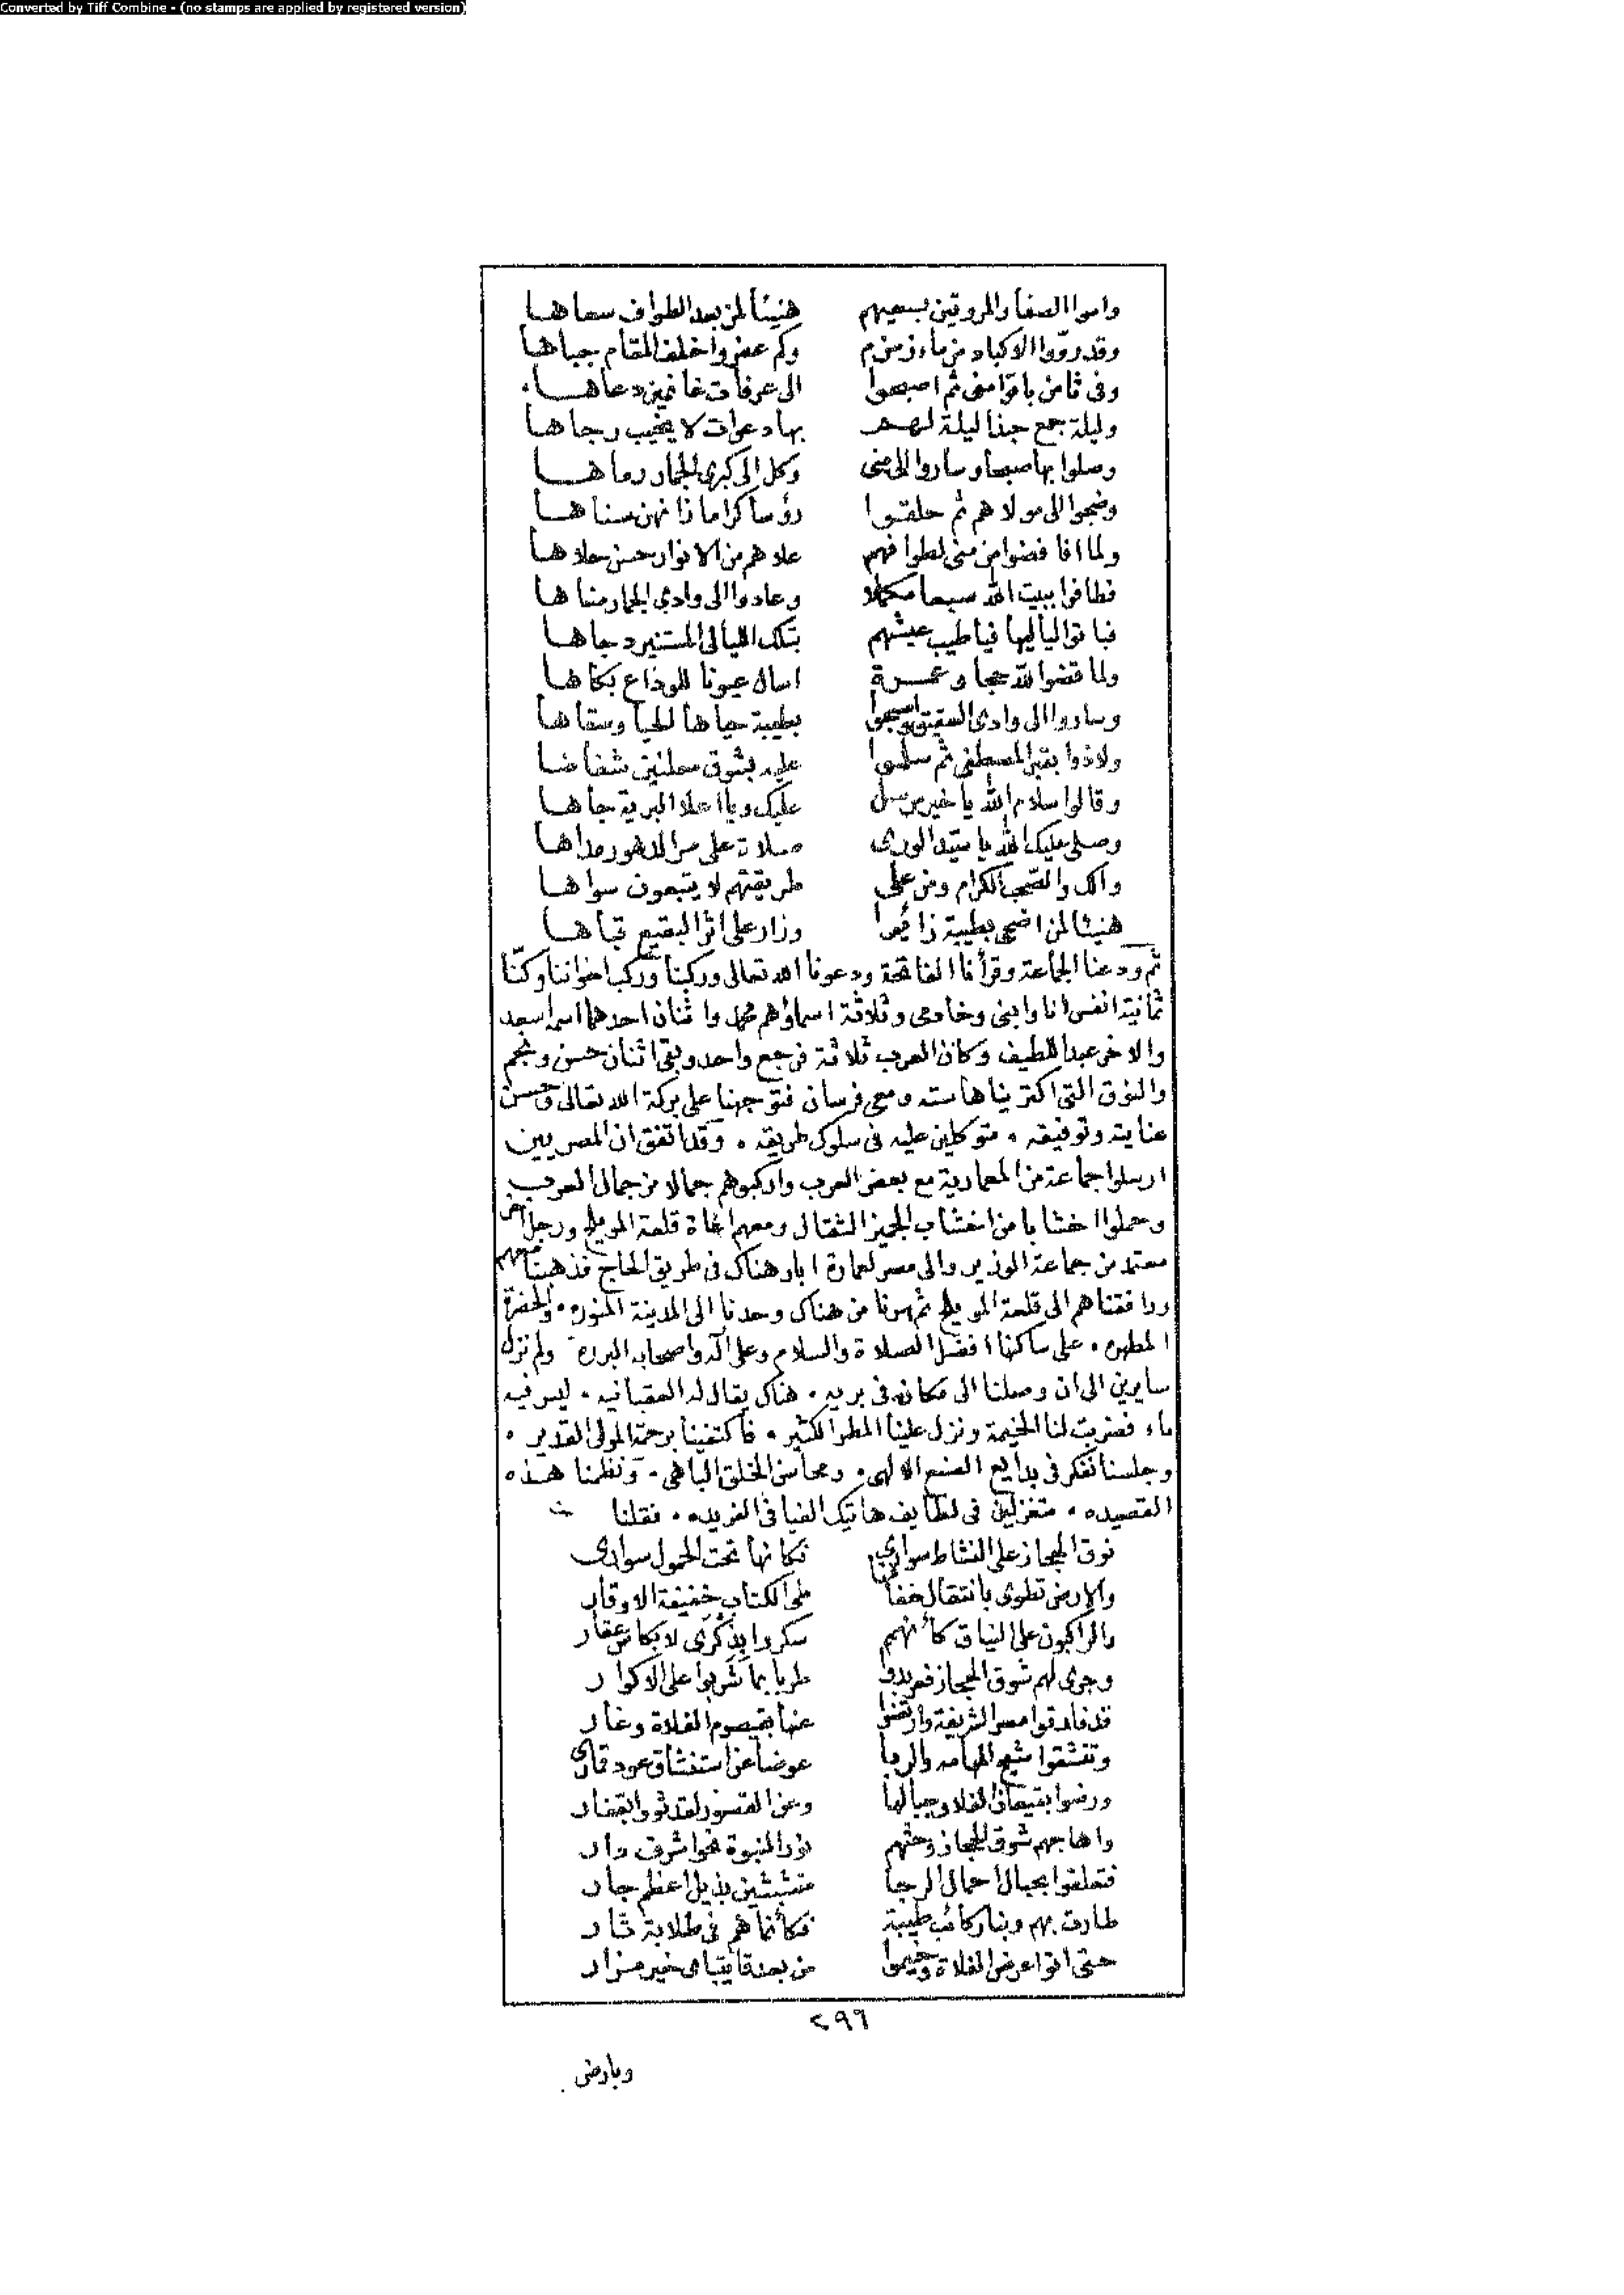 Converted by Tiff Combine - (no stamps are applied by registered version)
واموا الصفا والمروتين بسعيهم هنيئا لمن بعد الطواف سعاها
وقد روّوا الاكباد من ماء زمزم وكم عفروا خلف المقام جباها
وفى ثامن باتوا منى ثم اصبحوا الى عرفات غانمين دعاها
وليلة جمع حبذا ليلة لهم بها دعوات لا يخيب رجاها
وصلوا بها صبحا وساروا الى منى وكل الى كبرى الجمار رماها
وضجوا الى مولاهم ثم حلقوا رؤسا كراما زانهن سناها
ولما افاضوا من منى لطوافهم علاهم من الانوار حسن حلاها
فطافوا ببيت الله سبعا مكملا وعادوا الى وادى الجمار مناها
فباتوا لياليها فيا طيب عيشهم بتلك الليالى المستنير دجاها
ولما قضوا لله حجا وعمرة اسال عيونا للوداع بكاها
وساروا الى وادى العقيق واصبحوا بطيبة حياها الحيا وسقاها
ولاذوا بقبر المصطفى ثم سلموا عليه بشوق معلنين شفاها
وقالوا سلام الله يا خير مرسل عليك ويا اعلا البرية جاها
وصلى عليك الله يا سيّد الورى صلاة على مر الدهور مداها
وآلك والصّحب الكرام ومن على طريقتهم لا يتبعون سواها
هنيئا لمن اضحى بطيبة زائرا وزار على اثر البقيع قباها
ثم ودعنا الجماعة وقرأنا الفاتحة ودعونا الله تعالى وركبنا وركب اخواننا وكنّا
ثمانية انفس انا وابنى وخادمى وثلاثة اسماؤهم محمد واثنان احدهما اسمه اسعد
والاخر عبد اللطيف وكان العرب ثلاثة فرجع واحد وبقى اثنان حسن ونجم
والنوق التى اكتريناها سته ومعى فرسان فتوجهنا على بركة الله تعالى وحسن
عنايته وتوفيقه ٠ متوكلين عليه فى سلوك طريقه ٠ وقد اتفق ان المصريين
ارسلوا جماعة من المعمارية مع بعض العرب واركبوهم جمالا من جمال العرب
وحملوا اخشابا من اخشاب الجميز الثقال ومعهم اغاة قلعة المويلح ورجل
معتمد من جماعة الوزير والى مصر لعمارة ابار هناك فى طريق الحاج فذهبنا معهم
ورافقناهم الى قلعة المويلح ثم سرنا من هناك وحدنا الى المدينة المنوره ٠ والحضرة
المطهره ٠ على ساكنها افضل الصلاة والسلام وعلى آله واصحابه البرره ولم نزل
سايرين الى ان وصلنا الى مكان فى بريه ٠ هناك يقال له العقبانيه ٠ ليس فيه
ماء فضربت لنا الخيمة ونزل علينا المطر الكثير ٠ فاكتفينا برحمة المولى القدير ٠
وجلسنا نفكر فى بدايع الصنع الالهى ٠ ومحاسن الخلق الباهى ٠ ونظمنا هذه
القصيده ٠ متغزلين فى لطايف هاتيك الفيافى الفريده ٠ فقلنا
نوق الحجاز على النشاط سوارى فكانها تحت الحمول سوارى
والارض تطوى بانتقال خفافنا طى الكتاب خفيفة الاوقار
والراكبون على النياق كأنهم سكروا بذكرى لا بكاس عقار
وجرى لهم شوق الحجاز فعربدوا طربا بما شربوا على الاكوار
قد فارقوا مصر الشريفة وارتضوا عنها بقيصوم الفلاة وغار
وتنشقوا شيح المهامه والربا عوضا عن استنشاق عود قمارى
ورضوا بقيعان الفلا وجبالها وعن القصور لقد ثووا بقفار
واهاجهم شوق الحجاز وحثهم نور النبوة نحو اشرف دار
فتعلقوا بحبال احمال الرجا متشبثين بذيل اعظم جار
طارت بهم وبنا ركائب طيبة فكأنما هم فى طلابة ثار
حتى اتوا عرض الفلاة وخيموا من بعد قايتباى خير مزار
٢٩٦
وبارض